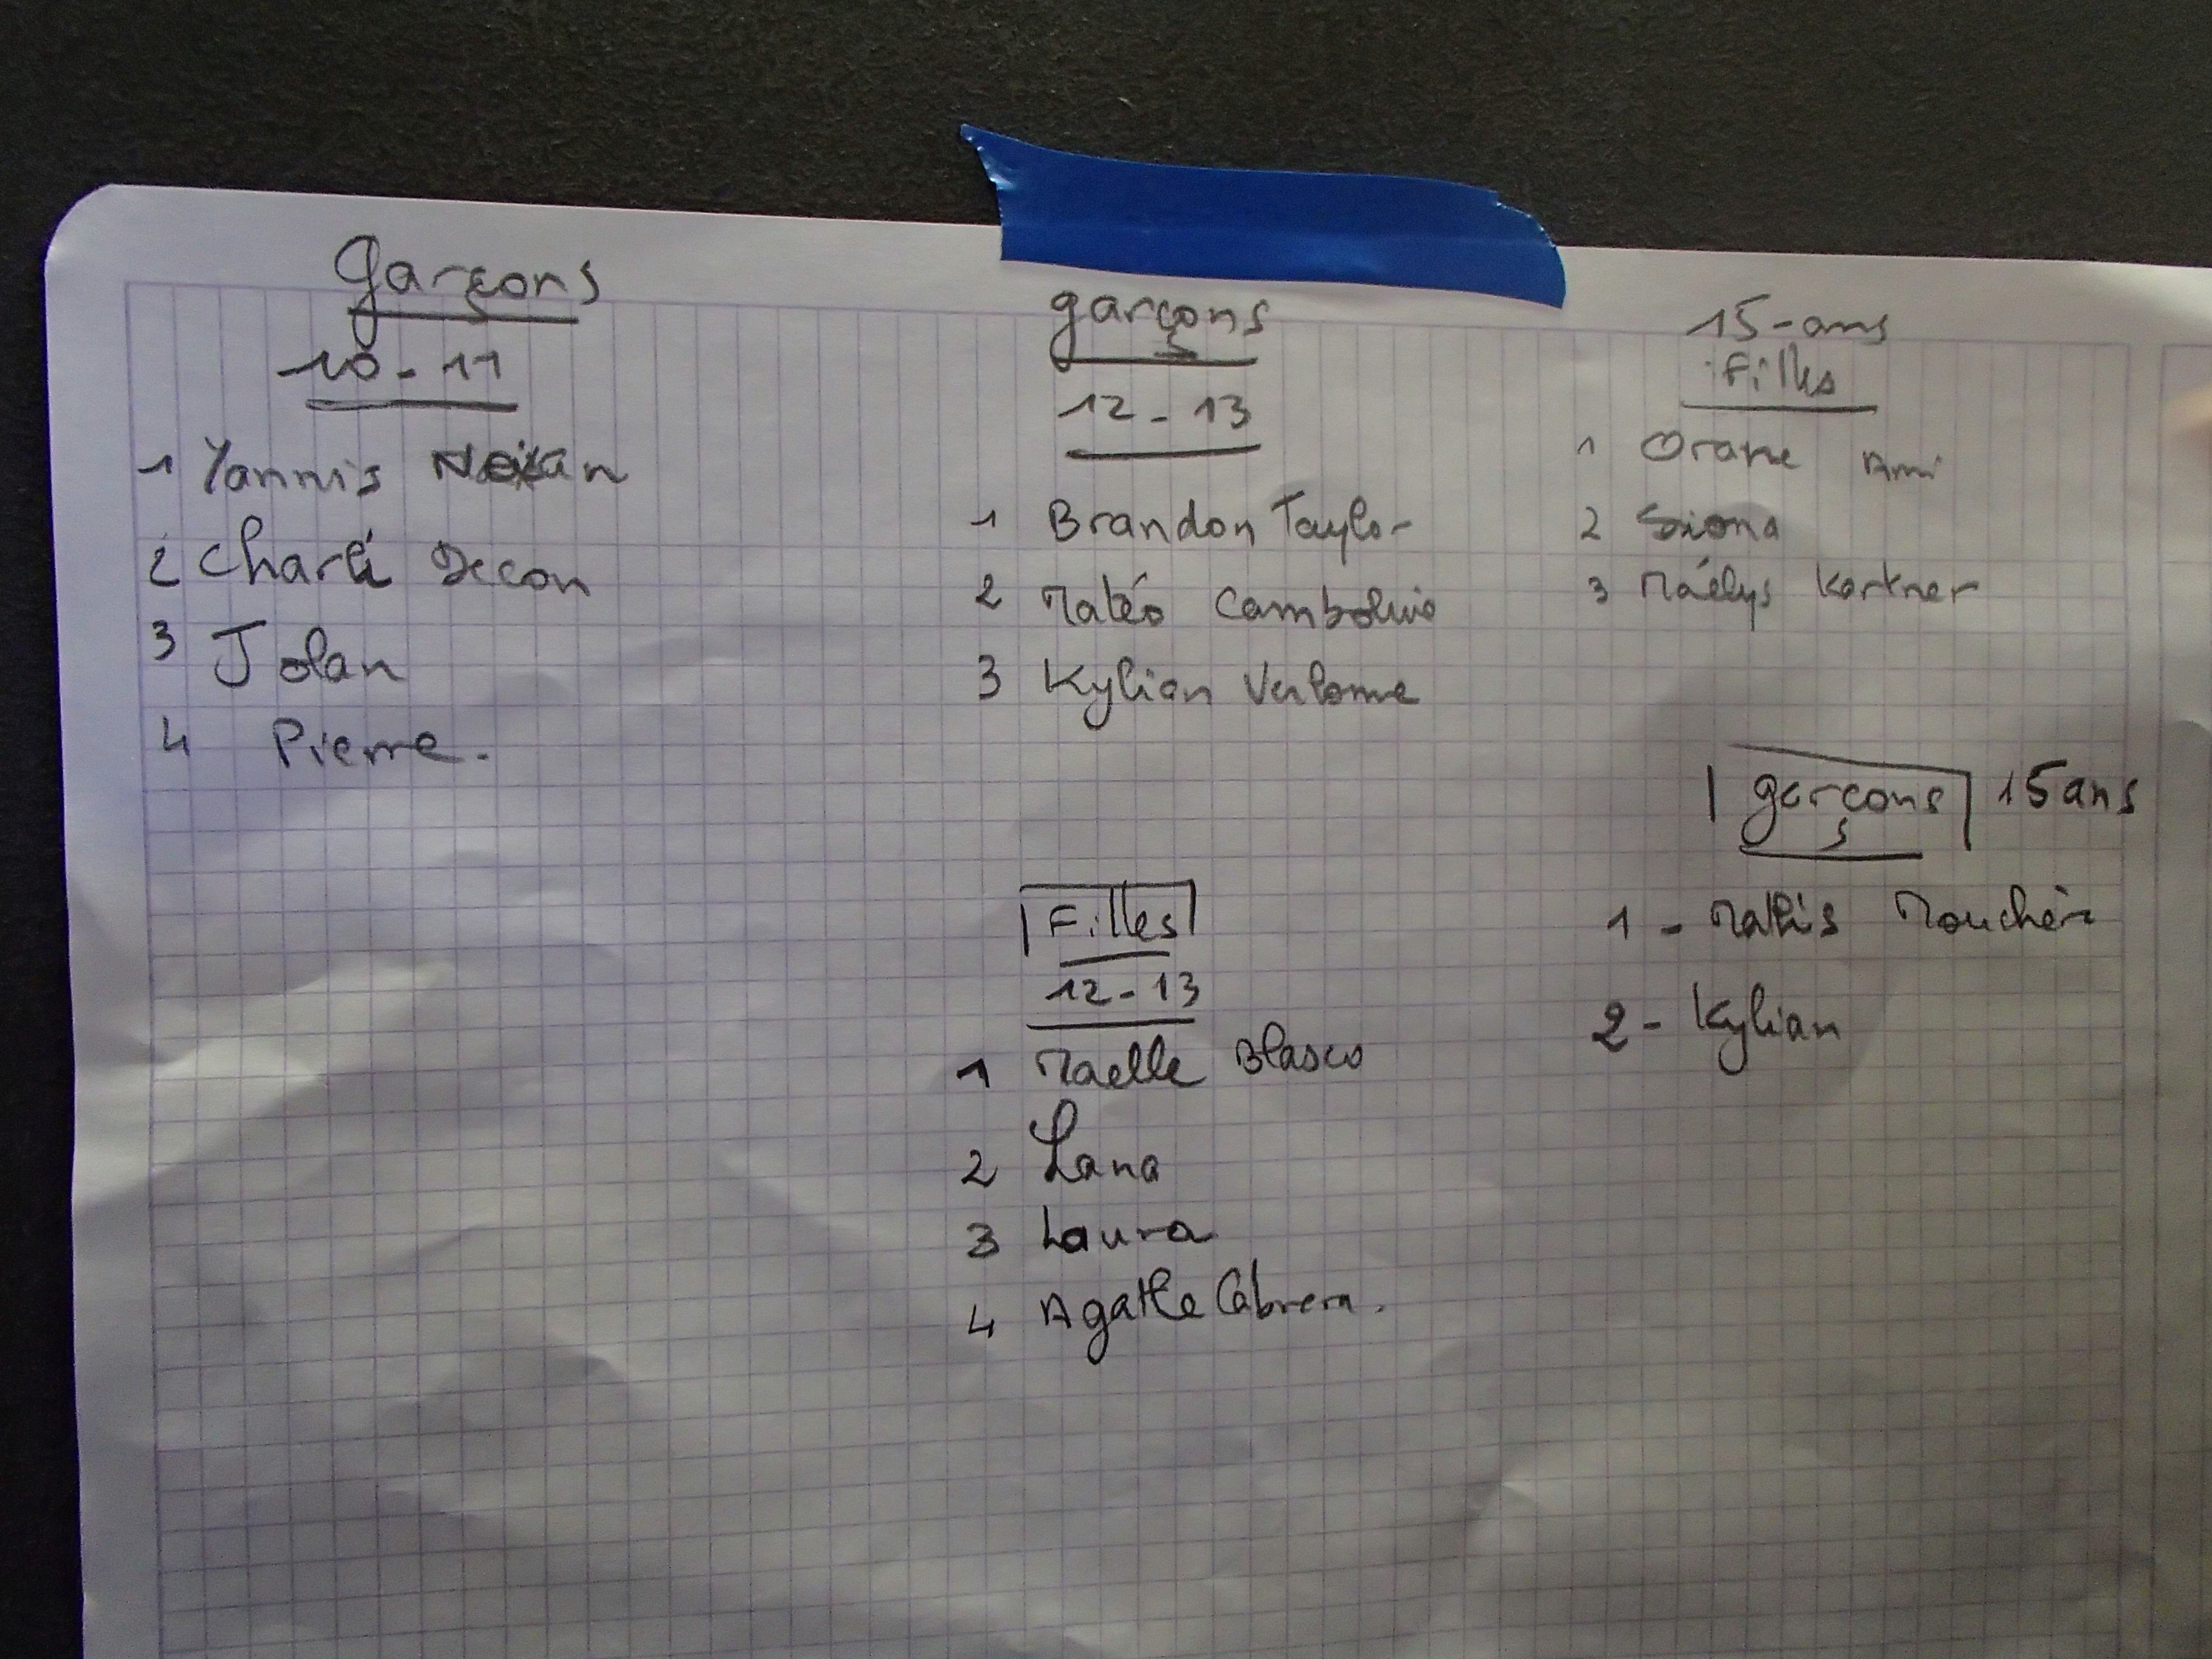 garçons
10-11
1 Yannis
2 Charli Decon
3 Jolan
4 Pierre.
garçons
12-13
1 Brandon Taylor
2 Matéo
3 Kylian
Filles
12-13
1 Maelle Blasco
2 Lana
3 Laura
4 Agathe Cabrera.
15-ans
Filles
1 Orane Ami
2 Siona
3 Maélys Kartner
garçons 15 ans
1 - Mathis
2 - Kylian